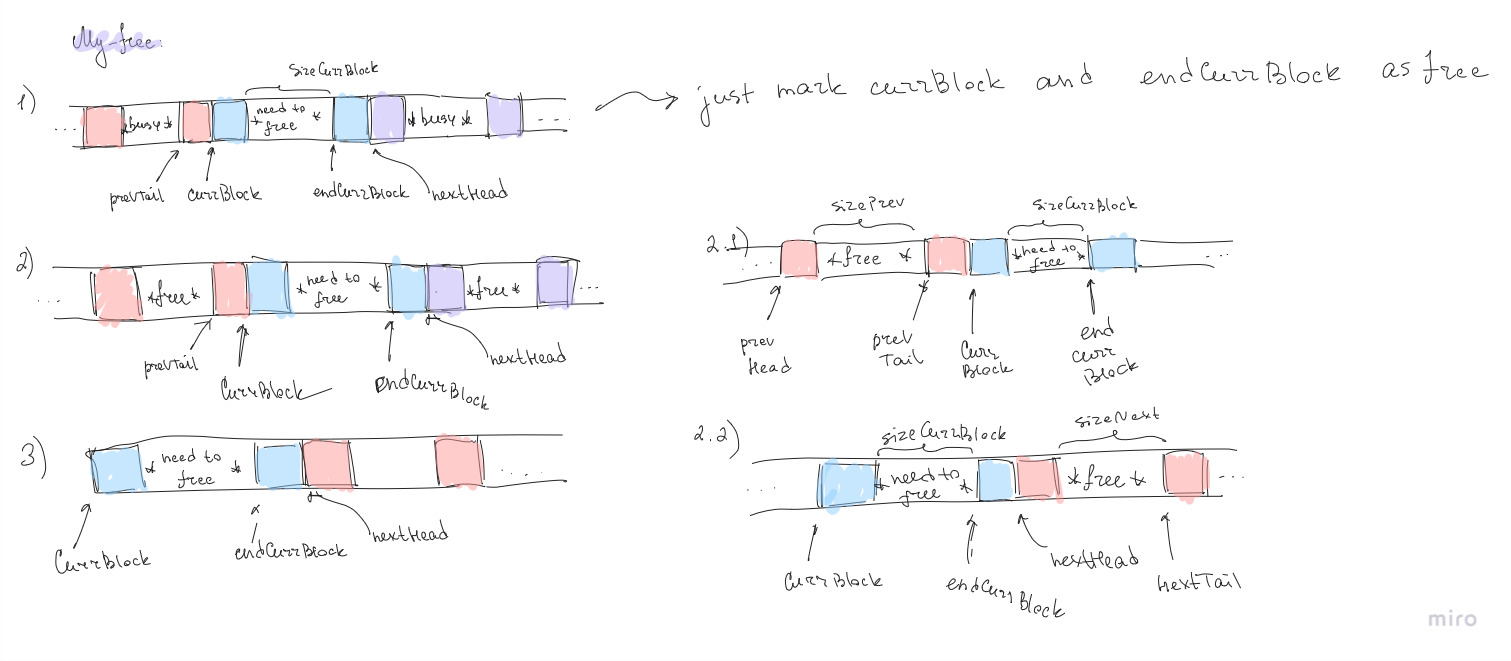 My-free:
1)
sizeCurrBlock
... *busy* *need to free* *busy* ...
prevTail currBlock endCurrBlock nextHead
just mark currBlock and endCurrBlock as free
2)
... *free* *need to free* *free* ...
prevTail CurrBlock endCurrBlock nextHead
3)
*need to free* ....
CurrBlock endCurrBlock nextHead
2.1)
sizePrev sizeCurrBlock
... *free * *need to free* ...
prev Head prev Tail Curr Block end curr Block
2.2)
sizeCurrBlock sizeNext
... *need to free* *free* ...
CurrBlock endCurrBlock nextHead nextTail
miro